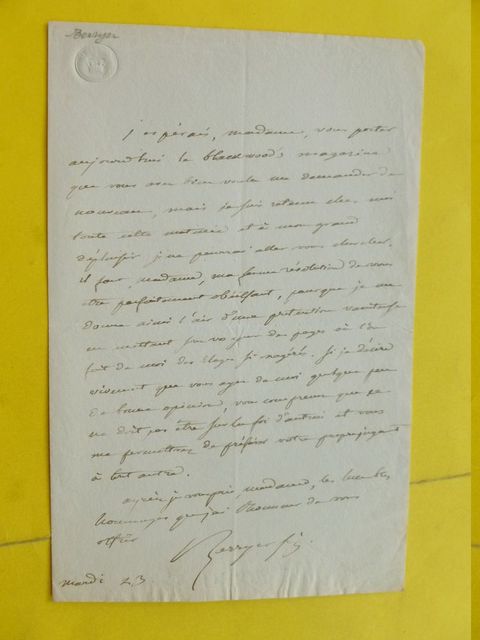 Berryer
J'espérais, madame, vous porter
aujourdhui le blackwood's magazine
que vous avez bien voulu me demander de
nouveau, mais je suis retenu chez moi
toute cette matinée et à mon grand
déplaisir je ne pourrai aller vous chercher.
il faut, madame, ma ferme résolution de vous
être parfaitement obéissant, pour que je me
donne ainsi l'air d'une prétention vaniteuse
en mettant sous vos yeux des pages où l'on
fait de moi des éloges si exagérés. Si je désire
vivement que vous ayez de moi quelque peu
de bonne opinion, vous comprenez que ce
ne doit pas être sur la foi d'autrui et vous
me permettrez de préférer votre propre jugement
à tout autre.
agréez je vous prie, madame, les humbles
hommages que j'ai l'honneur de vous
offrir
Berryer fs.
mardi 23